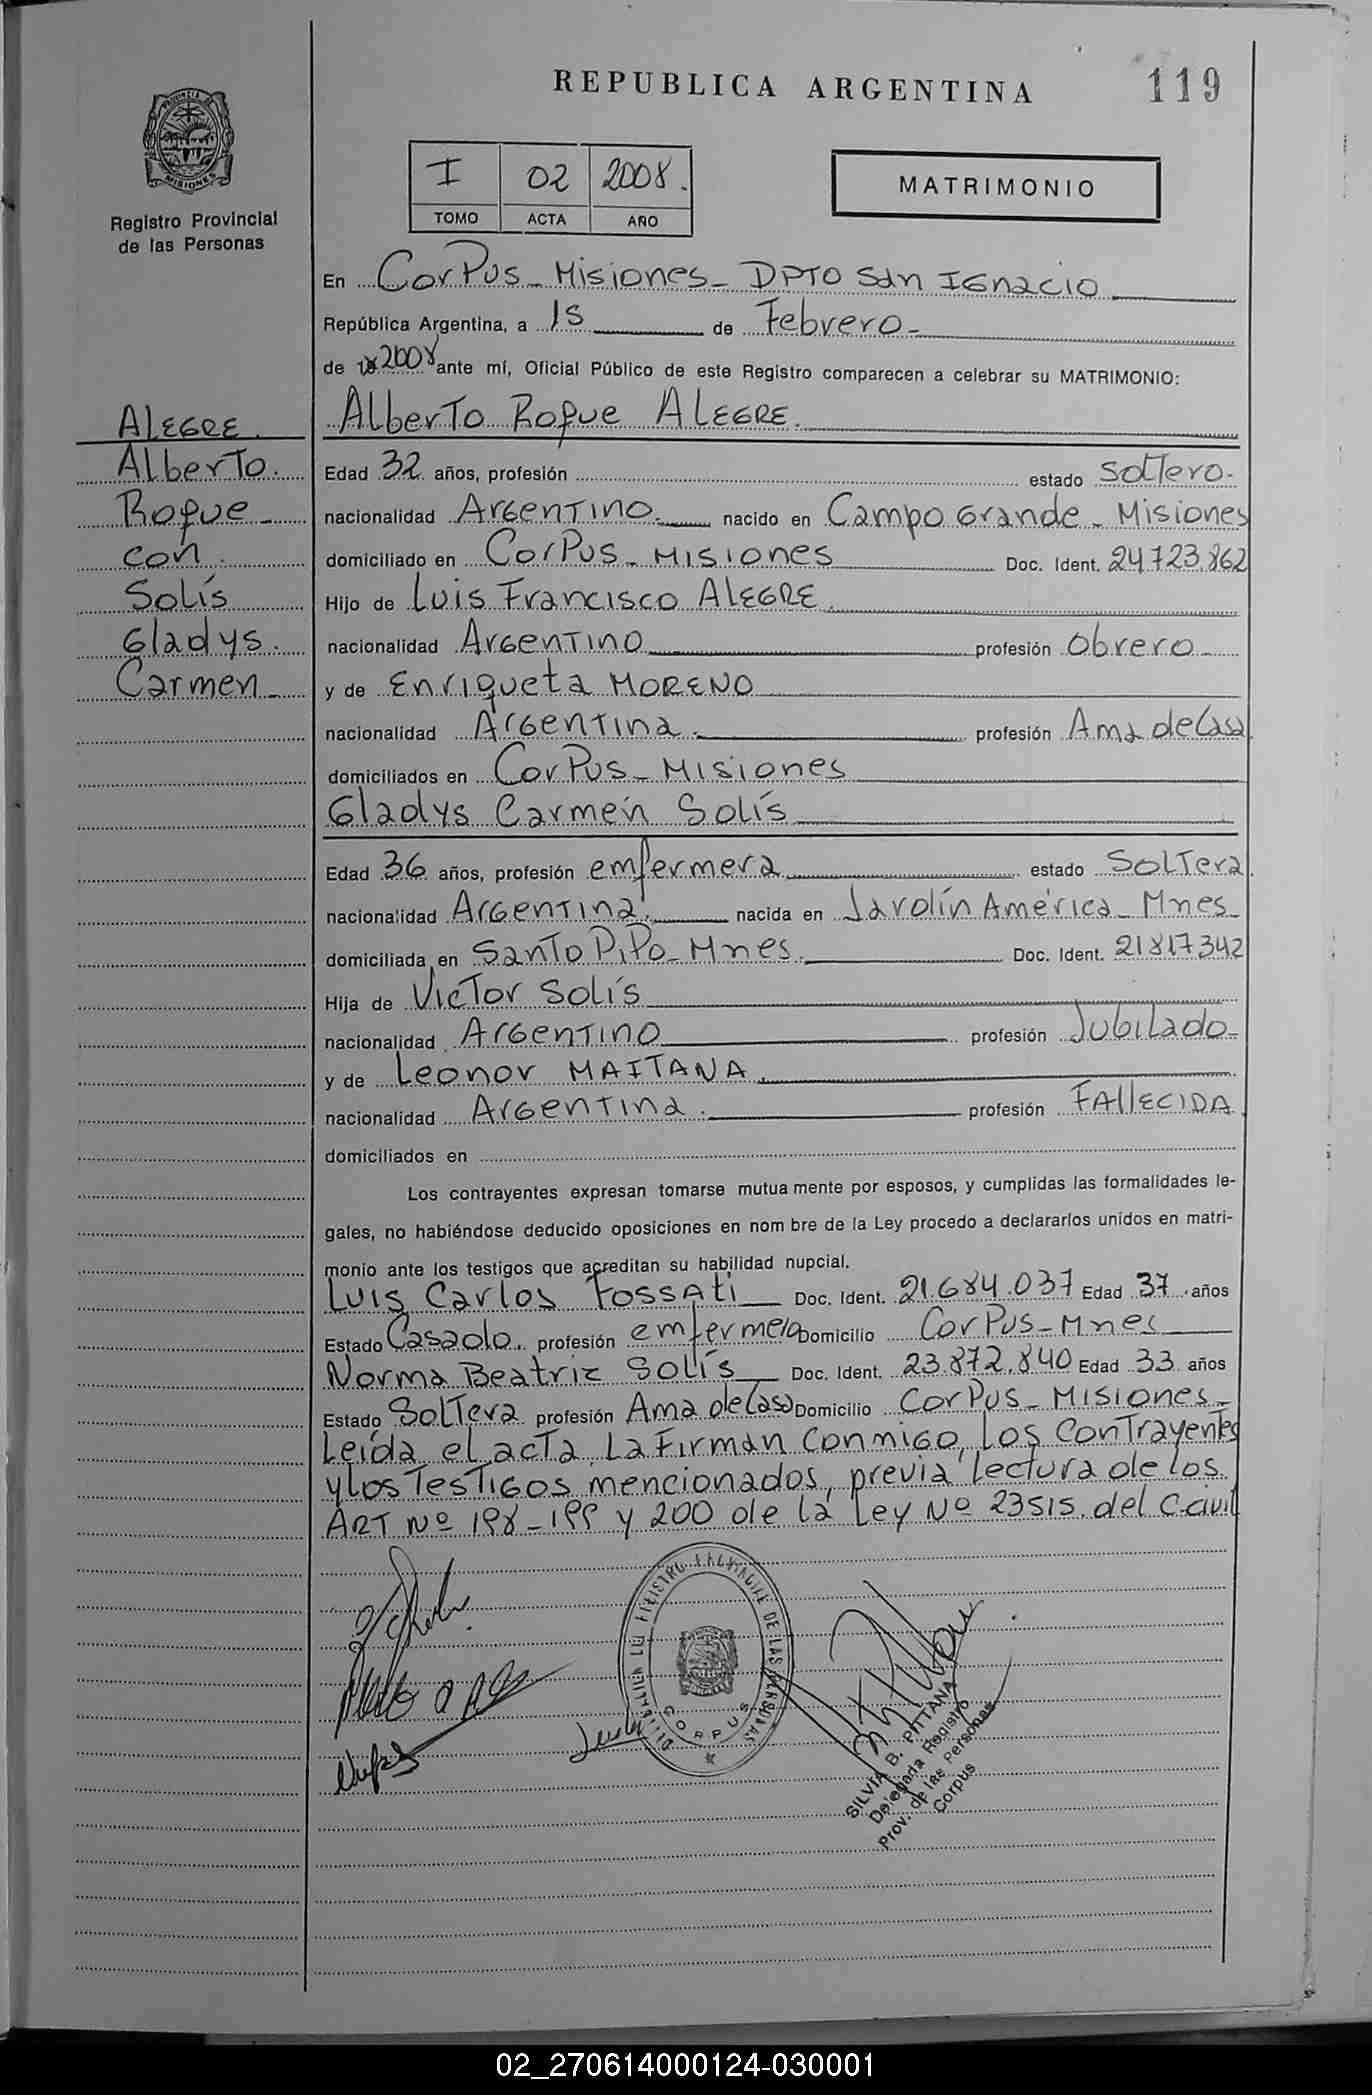 REPUBLICA ARGENTINA
119
MISIONES
Registro Provincial
de las Personas
I 02 2008.
TOMO ACTA AÑO
MATRIMONIO
En Corpus - Misiones - DPTO San Ignacio
República Argentina, a 15 de Febrero -
de 2008 ante mí, Oficial Público de este Registro comparecen a celebrar su MATRIMONIO:
Alberto Roque ALEGRE.
ALEGRE.
Alberto.
Roque -
con.
Solís
Gladys.
Carmen -
Edad 32 años, profesión estado Soltero -
nacionalidad Argentino. nacido en Campo Grande - Misiones
domiciliado en Corpus - Misiones Doc. Ident. 24723.862
Hijo de Luis Francisco ALEGRE.
nacionalidad Argentino profesión Obrero -
y de Enriqueta MORENO
nacionalidad Argentina. profesión Ama de Casa.
domiciliados en Corpus - Misiones
Gladys Carmen Solís
Edad 36 años, profesión enfermera estado Soltera.
nacionalidad Argentina. nacida en Jarolín América - Mnes -
domiciliada en Santo Pipo - Mnes. Doc. Ident. 21817342
Hija de Victor Solís
nacionalidad Argentino profesión Jubilado -
y de Leonor MAITANA.
nacionalidad Argentina. profesión FAllECIDA.
domiciliados en
Los contrayentes expresan tomarse mutua mente por esposos, y cumplidas las formalidades le-
gales, no habiéndose deducido oposiciones en nom bre de la Ley procedo a declararlos unidos en matri-
monio ante los testigos que acreditan su habilidad nupcial.
Luis Carlos Fossati Doc. Ident. 21.684.037 Edad 37 años
Estado Casado. profesión enfermero Domicilio Corpus - Mnes
Norma Beatriz Solís Doc. Ident. 23.872.840 Edad 33 años
Estado Soltera profesión Ama de Casa Domicilio Corpus - Misiones -
Leída el acta, La Firman conmigo, los Contrayentes
y los Testigos mencionados, previa lectura de los
ART Nº 198 - 199 y 200 de la Ley Nº 23515. del C.civil
CORPUS
SILVIA B. PITTANA
Delegada Registro
Prov. de las Personas
Corpus
02_270614000124-030001